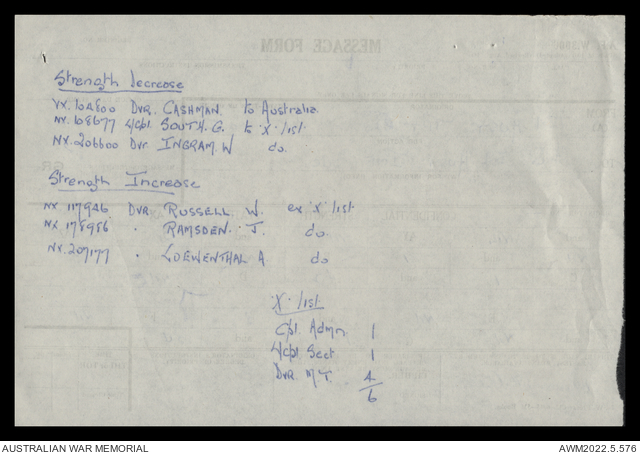 Strength Decrease
VX.104800 Dvr. CASHMAN. to Australia.
NX.108677 L/Cpl SOUTH. G. to 'X' list.
NX.206600 Dvr INGRAM. W do.
Strength Increase
NX 117946 Dvr RUSSELL W. ex 'X' list
NX.178956 " RAMSDEN. J. do.
NX.207177 " LOEWENTHAL A do
'X' list
Cpl. Admn. 1
L/Cpl Sect 1
Dvr. M T. 4
6
MESSAGE FORM
AUSTRALIAN WAR MEMORIAL
AWM2022.5.576